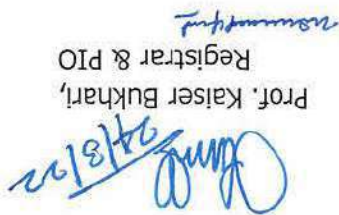 24/3/22
Prof. Kaiser Bukhari,
Registrar & PIO